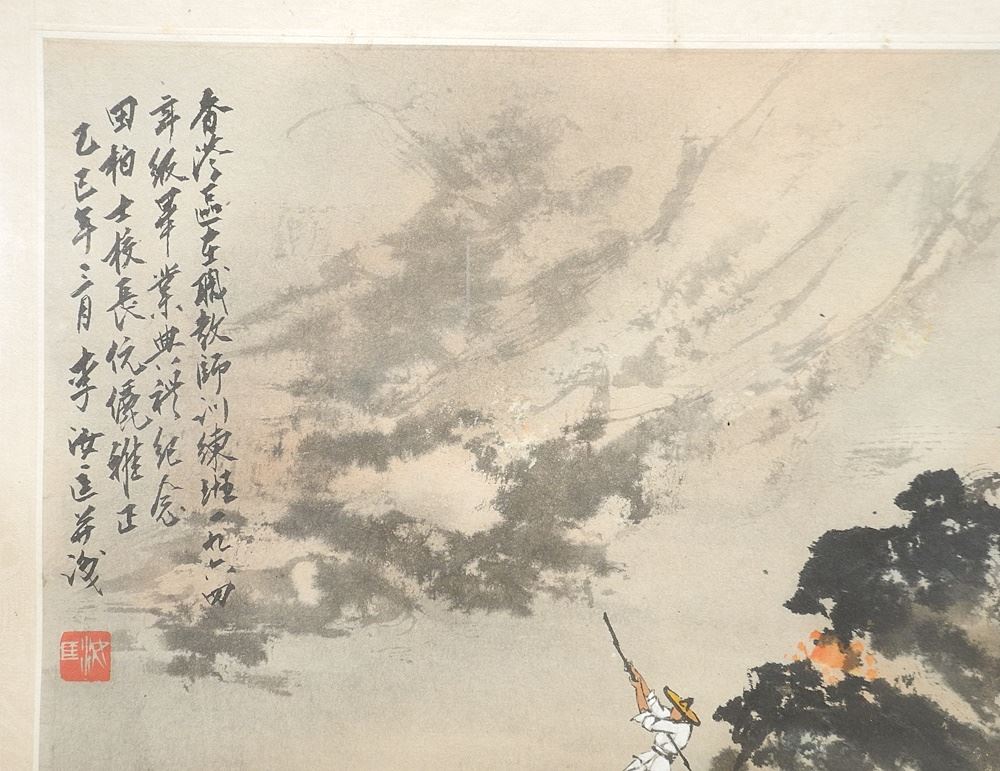 香港區在職教師訓練班一九六四
年級畢業典禮紀念
田柏士校長伉儷雅正
乙巳年三月 李汝匡并識
汝匡